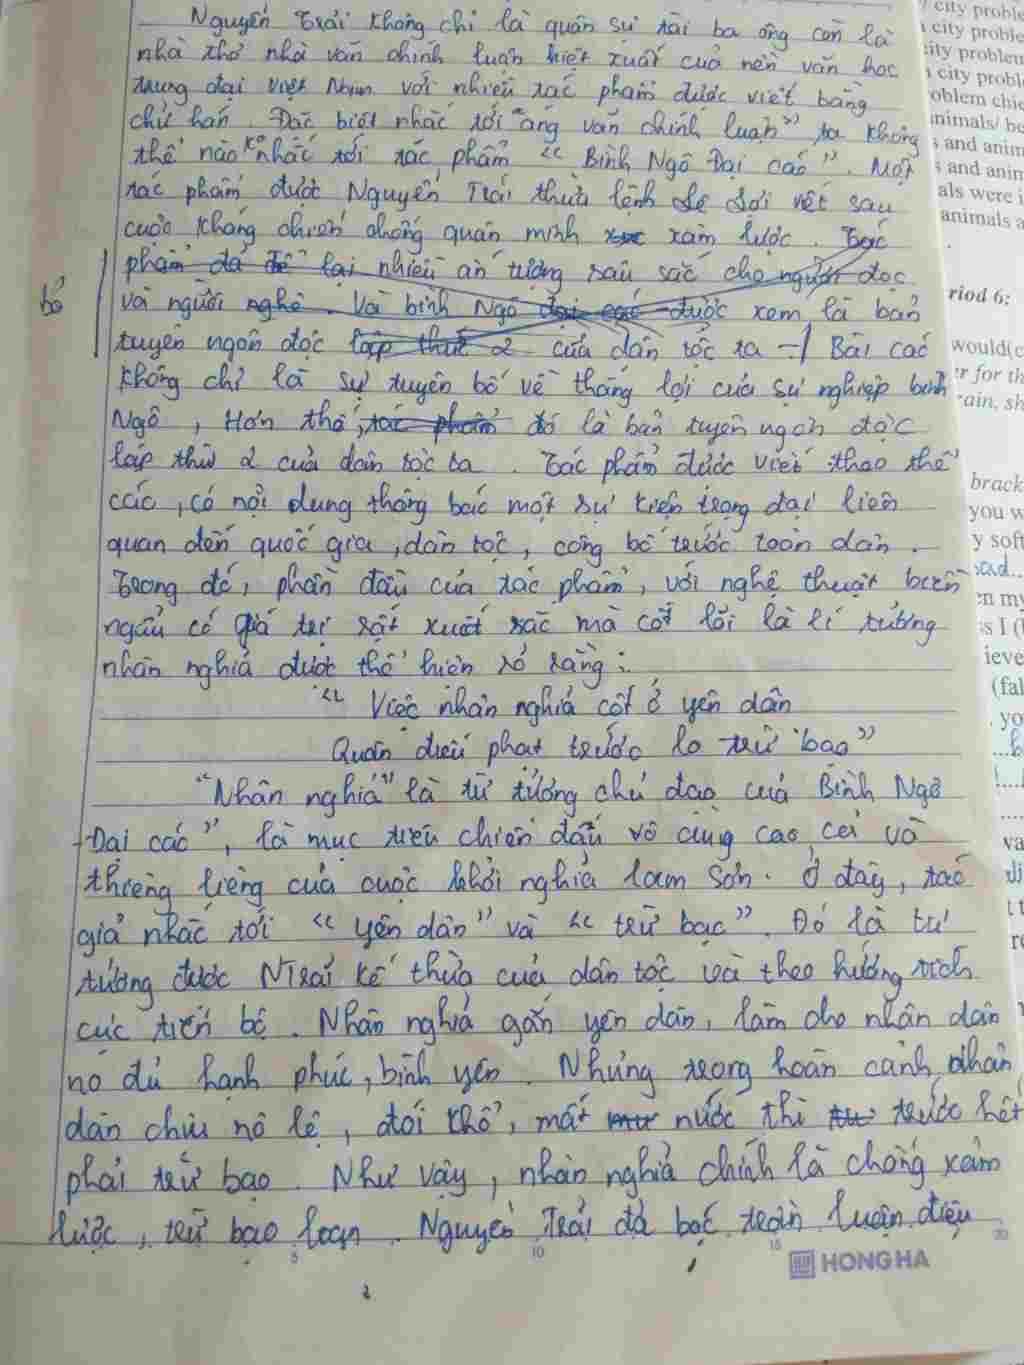 Nguyễn Trãi không chỉ là quân sư tài ba ông còn là
nhà thơ nhà văn chính luận kiệt xuất của nền văn học
trung đại việt Nam với nhiều tác phẩm được viết bằng
chữ hán. Đặc biệt nhắc tới "áng văn chính luận", ta không
thể nào kn nhắc tới tác phẩm "Bình Ngô Đại cáo". Một
tác phẩm được Nguyễn Trãi thừa lệnh Lê Lợi viết sau
cuộc kháng chiến chống quân minh xâm lược. Tác
phẩm đã để lại nhiều ấn tượng sâu sắc cho người đọc
bỏ
và người nghe. Và bình Ngô đại cáo được xem là bản
tuyên ngôn độc lập thứ 2 của dân tộc ta → Bài cáo
không chỉ là sự tuyên bố về thắng lợi của sự nghiệp bình
Ngô, Hơn thế, tác phẩm đó là bản tuyên ngôn độc
lập thứ 2 của dân tộc ta. Tác phẩm được viết theo thể
cáo, có nội dung thông báo một sự kiện trọng đại liên
quan đến quốc gia, dân tộc, công bố trước toàn dân.
Trong đó, phần đầu của tác phẩm, với nghệ thuật biền
ngẫu có giá trị rất xuất sắc mà cốt lõi là lí tưởng
nhân nghĩa được thể hiện rõ ràng:
"Việc nhân nghĩa cốt ở yên dân
Quân điếu phạt trước lo trừ bạo"
"Nhân nghĩa" là tư tưởng chủ đạo của Bình Ngô
Đại cáo", là mục tiêu chiến đấu vô cùng cao cả và
thiêng liêng của cuộc khởi nghĩa lam Sơn. Ở đây, tác
giả nhắc tới "yên dân" và "trừ bạo". Đó là tư
tưởng được NTrãi kế thừa của dân tộc và theo hướng tích
cực tiến bộ. Nhân nghĩa gắn yên dân, làm cho nhân dân
no đủ hạnh phúc, bình yên. Nhưng trong hoàn cảnh nhân
dân chịu nô lệ, đói khổ, mất nước thì trước hết
phải trừ bạo. Như vậy, nhân nghĩa chính là chống xâm
lược, trừ bạo loạn. Nguyễn Trãi đã bác trần luận điệu
5
10
15
20
HONG HA
city proble
city proble
city problem
city probl
oblem chic
nimals/ be
s and anim
s and anim
als were i
animals a
riod 6:
would(c
r for th
rain, sh
brack
you w
y soft
en my
s I (
ieve
(fal
yo
va